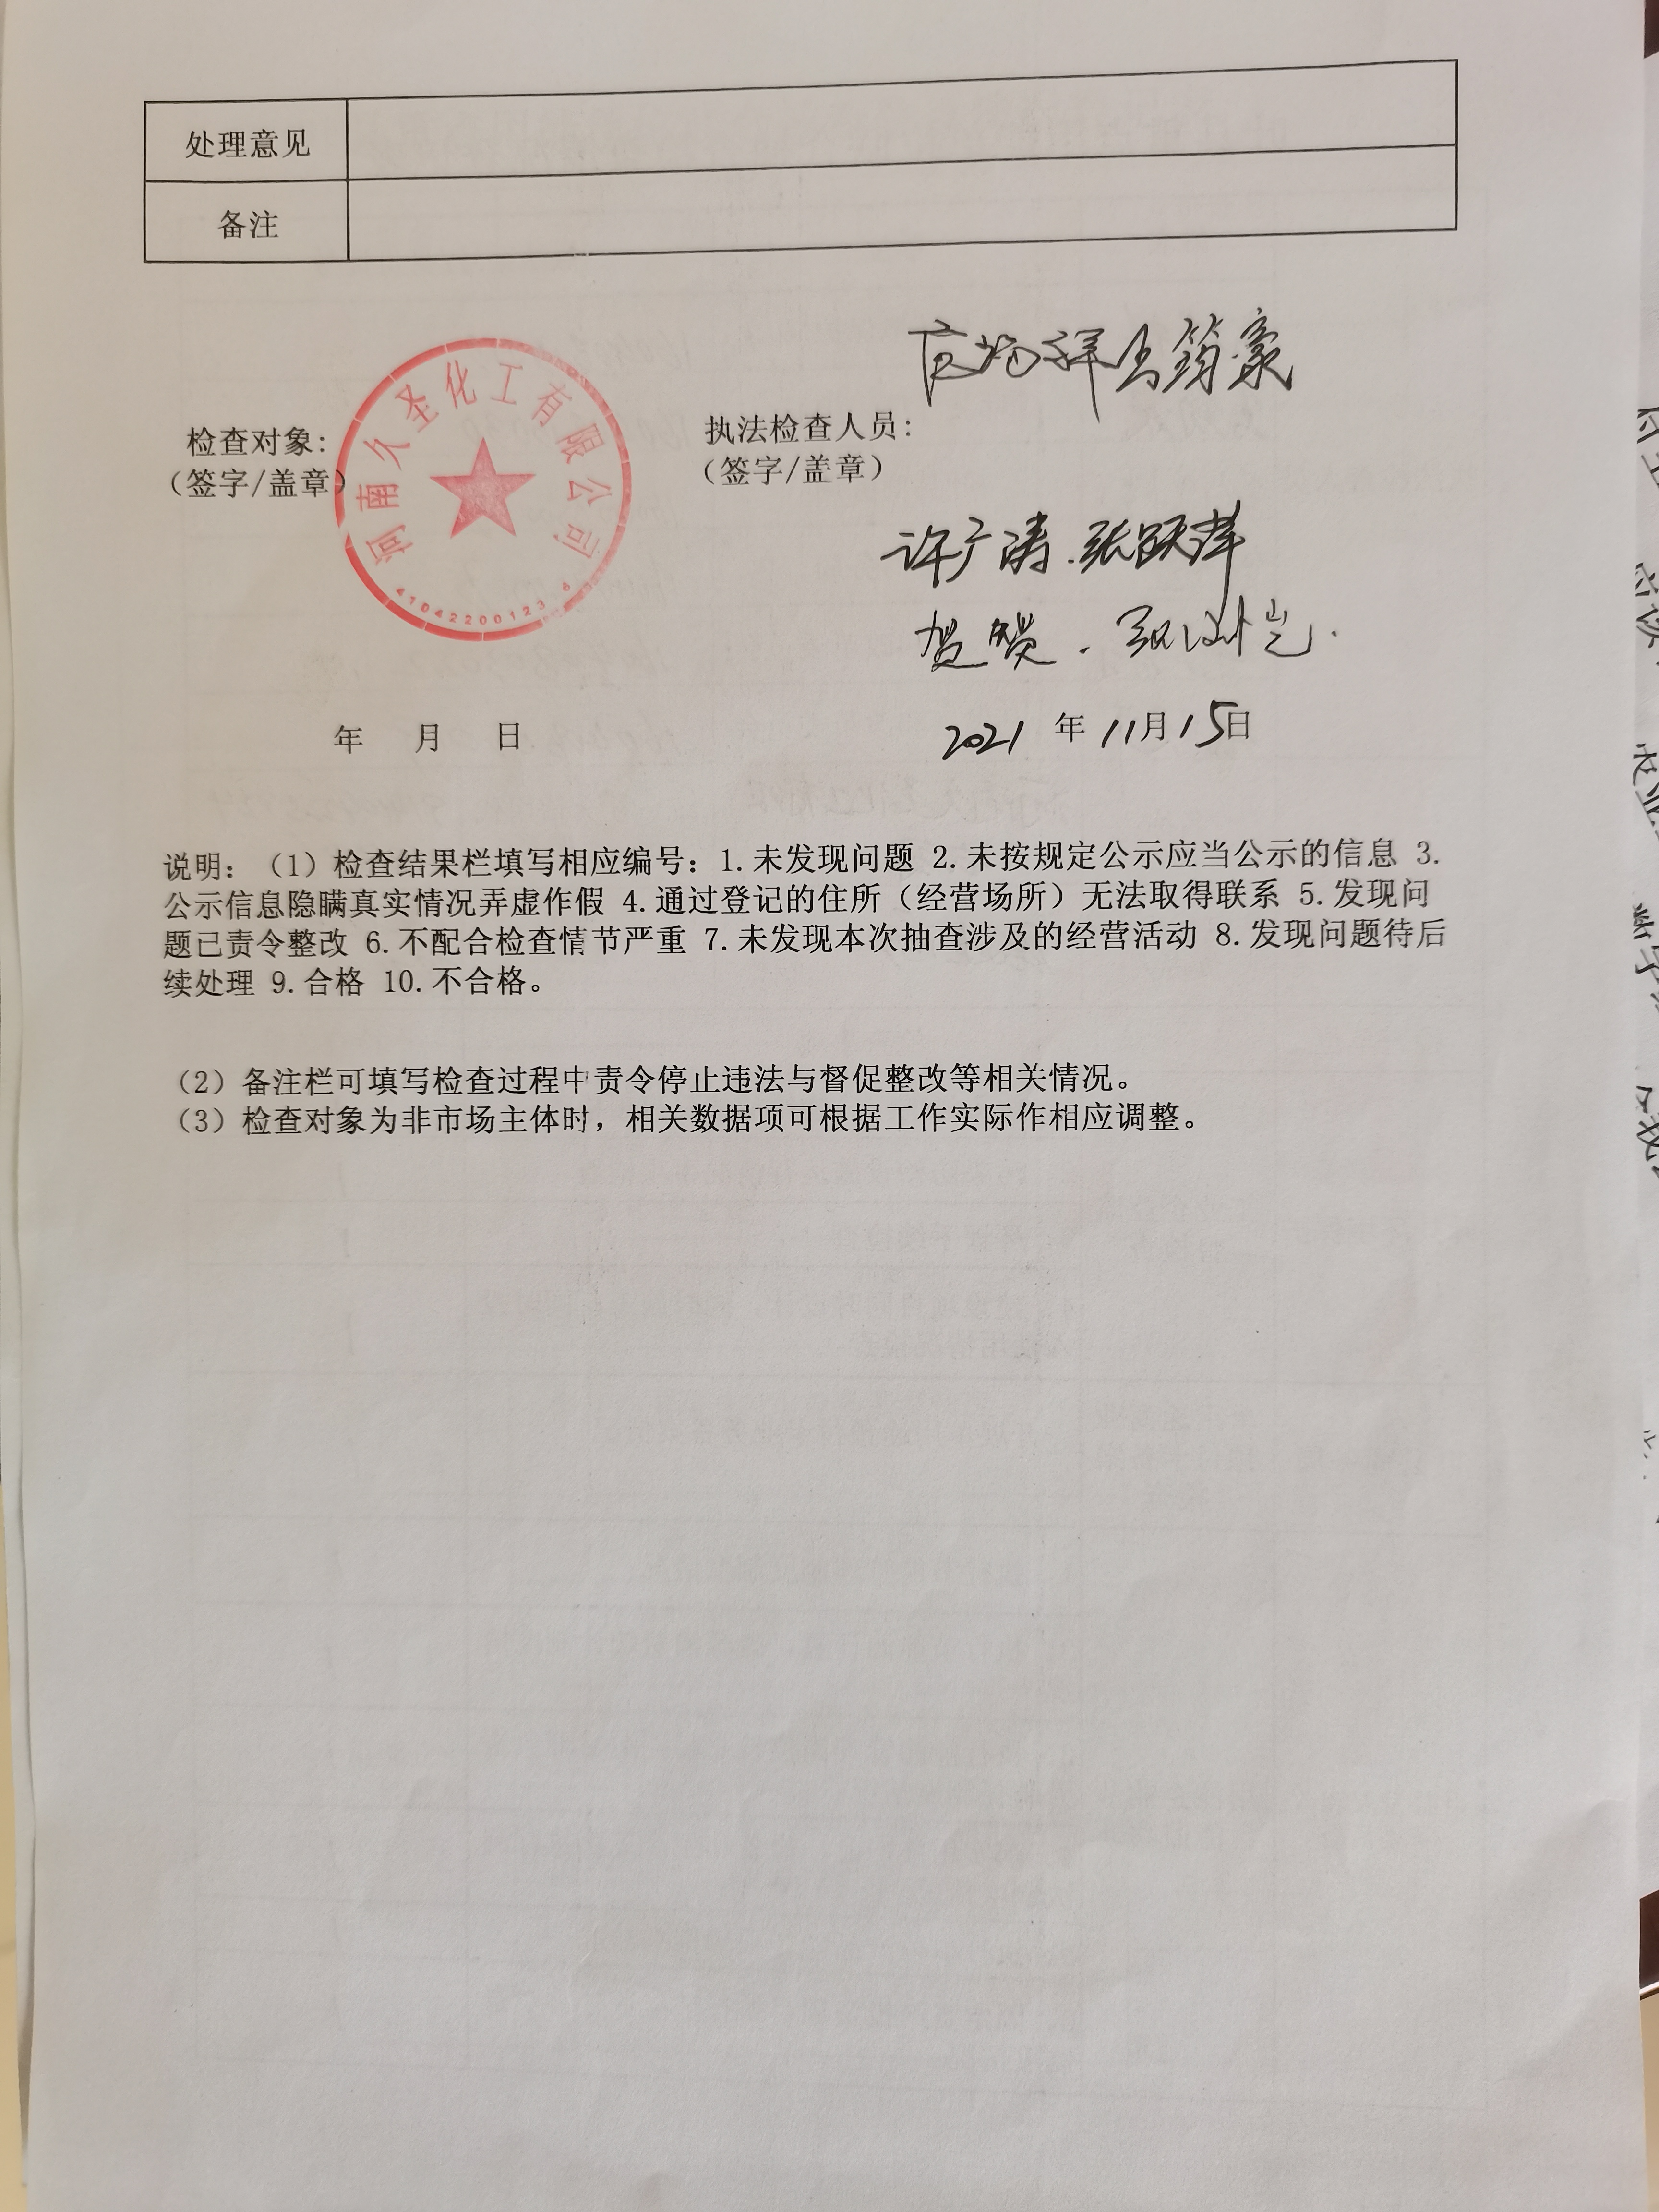 处理意见
备注
检查对象:
(签字/盖章)
河南久圣化工有限公司
41042200123
执法检查人员:
(签字/盖章)
许广涛.张跃萍
贺贺.
年 月 日
2021 年 11月15日
说明:(1)检查结果栏填写相应编号:1.未发现问题 2.未按规定公示应当公示的信息 3.
公示信息隐瞒真实情况弄虚作假 4.通过登记的住所(经营场所)无法取得联系 5.发现问
题已责令整改 6.不配合检查情节严重 7.未发现本次抽查涉及的经营活动 8.发现问题待后
续处理 9.合格 10.不合格。
(2)备注栏可填写检查过程中责令停止违法与督促整改等相关情况。
(3)检查对象为非市场主体时,相关数据项可根据工作实际作相应调整。